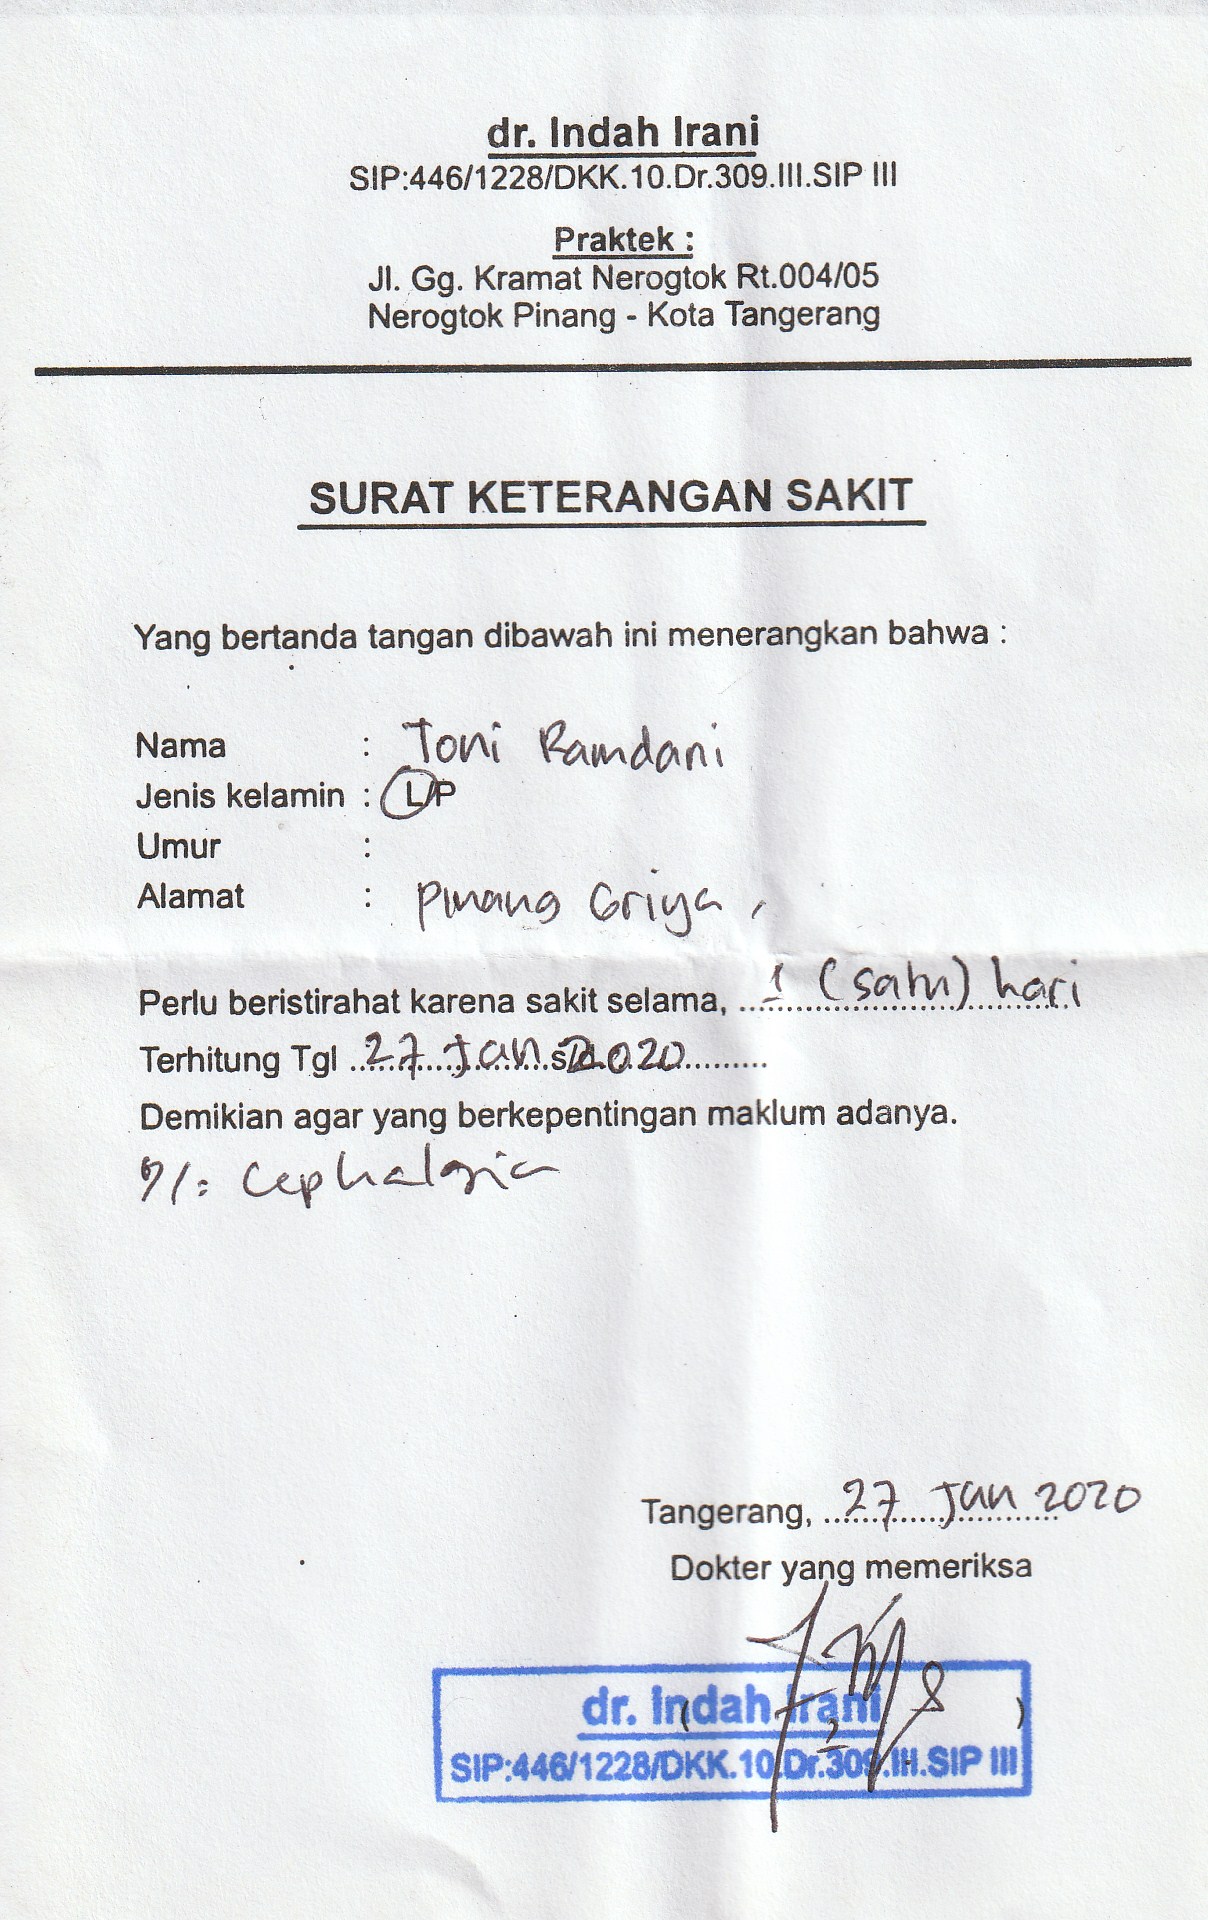 dr. Indah Irani
SIP:446/1228/DKK.10.Dr.309.III.SIP III
Praktek :
Jl. Gg. Kramat Nerogtok Rt.004/05
Nerogtok Pinang - Kota Tangerang
SURAT KETERANGAN SAKIT
Yang bertanda tangan dibawah ini menerangkan bahwa :
Nama : Toni Ramdani
Jenis kelamin : L/P
Umur :
Alamat : Pinang Griya,
Perlu beristirahat karena sakit selama, 1 (satu) hari
Terhitung Tgl 27 Jan s/d 2020
Demikian agar yang berkepentingan maklum adanya.
Cephalgia
Tangerang, 27 Jan 2020
Dokter yang memeriksa
dr. Indah Irani
SIP:446/1228/DKK.10.Dr.309.III.SIP III